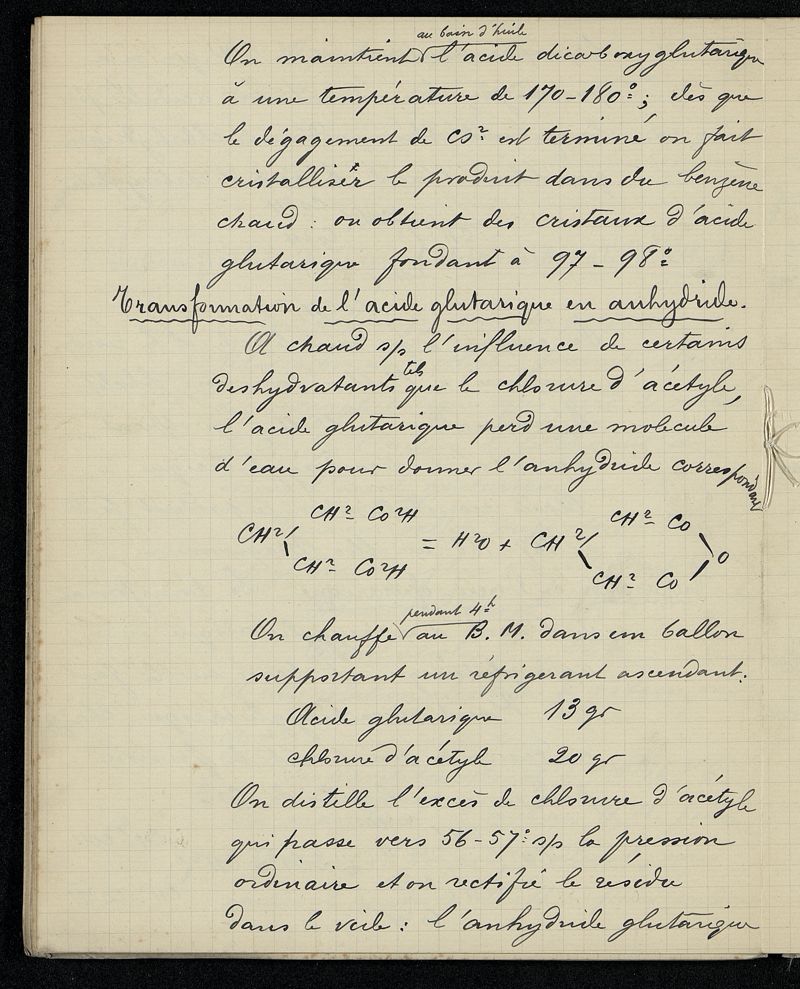 au bain d'huile
On maintient l'acide dicarboxyglutarique
à une température de 170-180°; dès que
le dégagement de CO² est terminé on fait
cristalliser le produit dans du benzène
chaud : on obtient des cristaux d'acide
glutarique fondant à 97 - 98°
Transformation de l'acide glutarique en anhydride.
A chaud s/s l'influence de certains
deshydratants tels que le chlorure d'acétyle,
l'acide glutarique perd une molecule
d'eau pour donner l'anhydride correspondant
CH² - CO²H CH² - CO
CH² = H²O + CH² O
CH² - CO²H CH² CO
pendant 4h
On chauffe au B. M. dans un ballon
supportant un réfrigerant ascendant:
Acide glutarique 13 gr
chlorure d'acétyle 20 gr
On distille l'excès de chlorure d'acétyle
qui passe vers 56-57° s/s la pression
ordinaire et on rectifie le résidu
dans le vide : l'anhydride glutarique